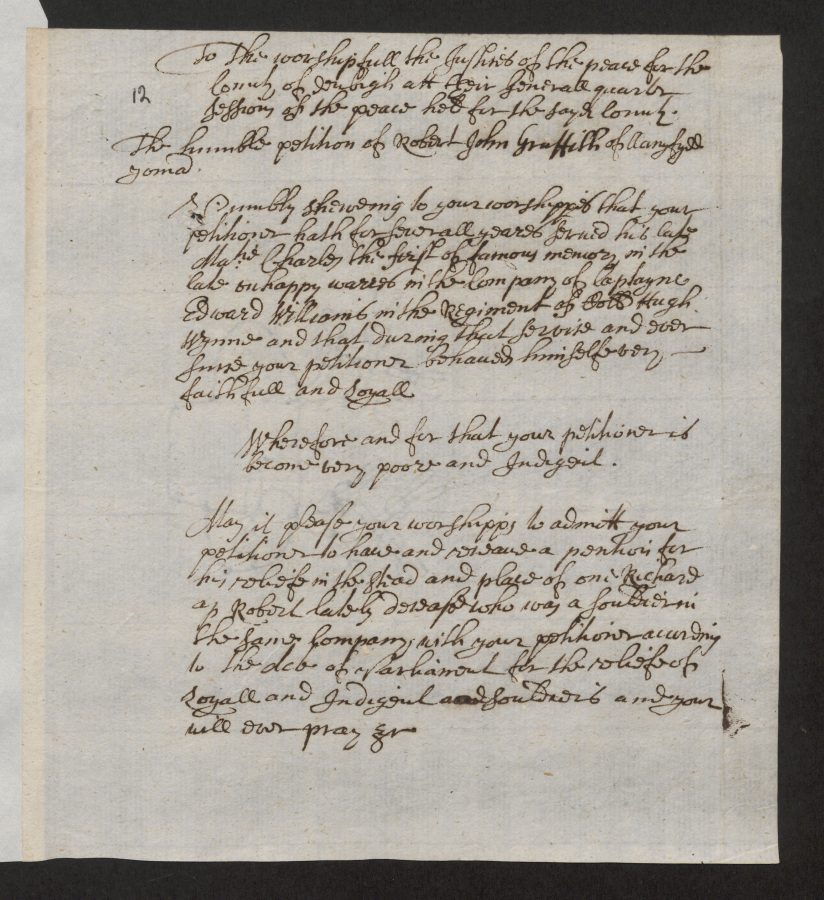 To The worshipfull the Justices of the peace for the
12
County of denbigh att their Generall quarter
sessions of the peace held for the sayd County.
The humble petition of Robert John Gruffith of llanyfydd
Humbly Sheweing to your worshipps that your
petitioner hath for severall yeares served his late
Matie Charles the first of famous memory in the
late onhappy warres in the Company of Captayne
Edward Williams in the Regiment of Coll Hugh
Wynne and that during that service and ever
since your petitioner behaved himselfe very
faithfull and Loyall
Wherefore and for that your petitioner is
become very poore and Indigent.
May it please your worshipps to admitt your
petitioner to have and receave a pention for
his reliefe in the stead and place of one Richard
ap Robert lately decease who was a souldier in
the same Company with your petitioner according
to the Acte of Parliament for the reliefe of
Loyall and Indigent and souldiers and your
will ever pray &c